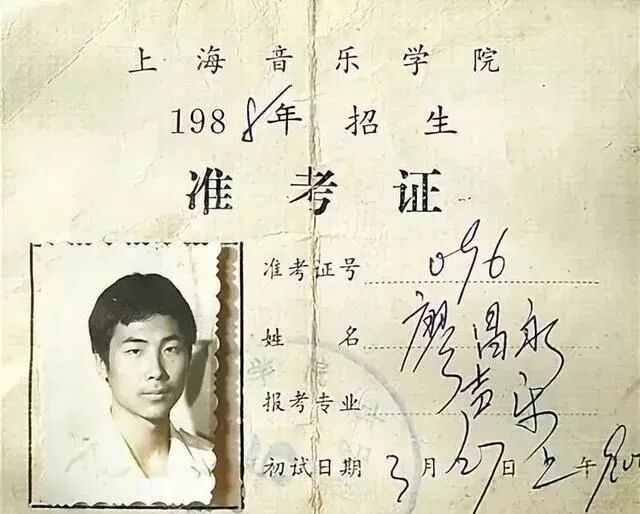 上海音乐学院
1988年 招生
准考证
准考证号 096
姓名 廖昌永
报考专业 声乐
初试日期 3月27日上午